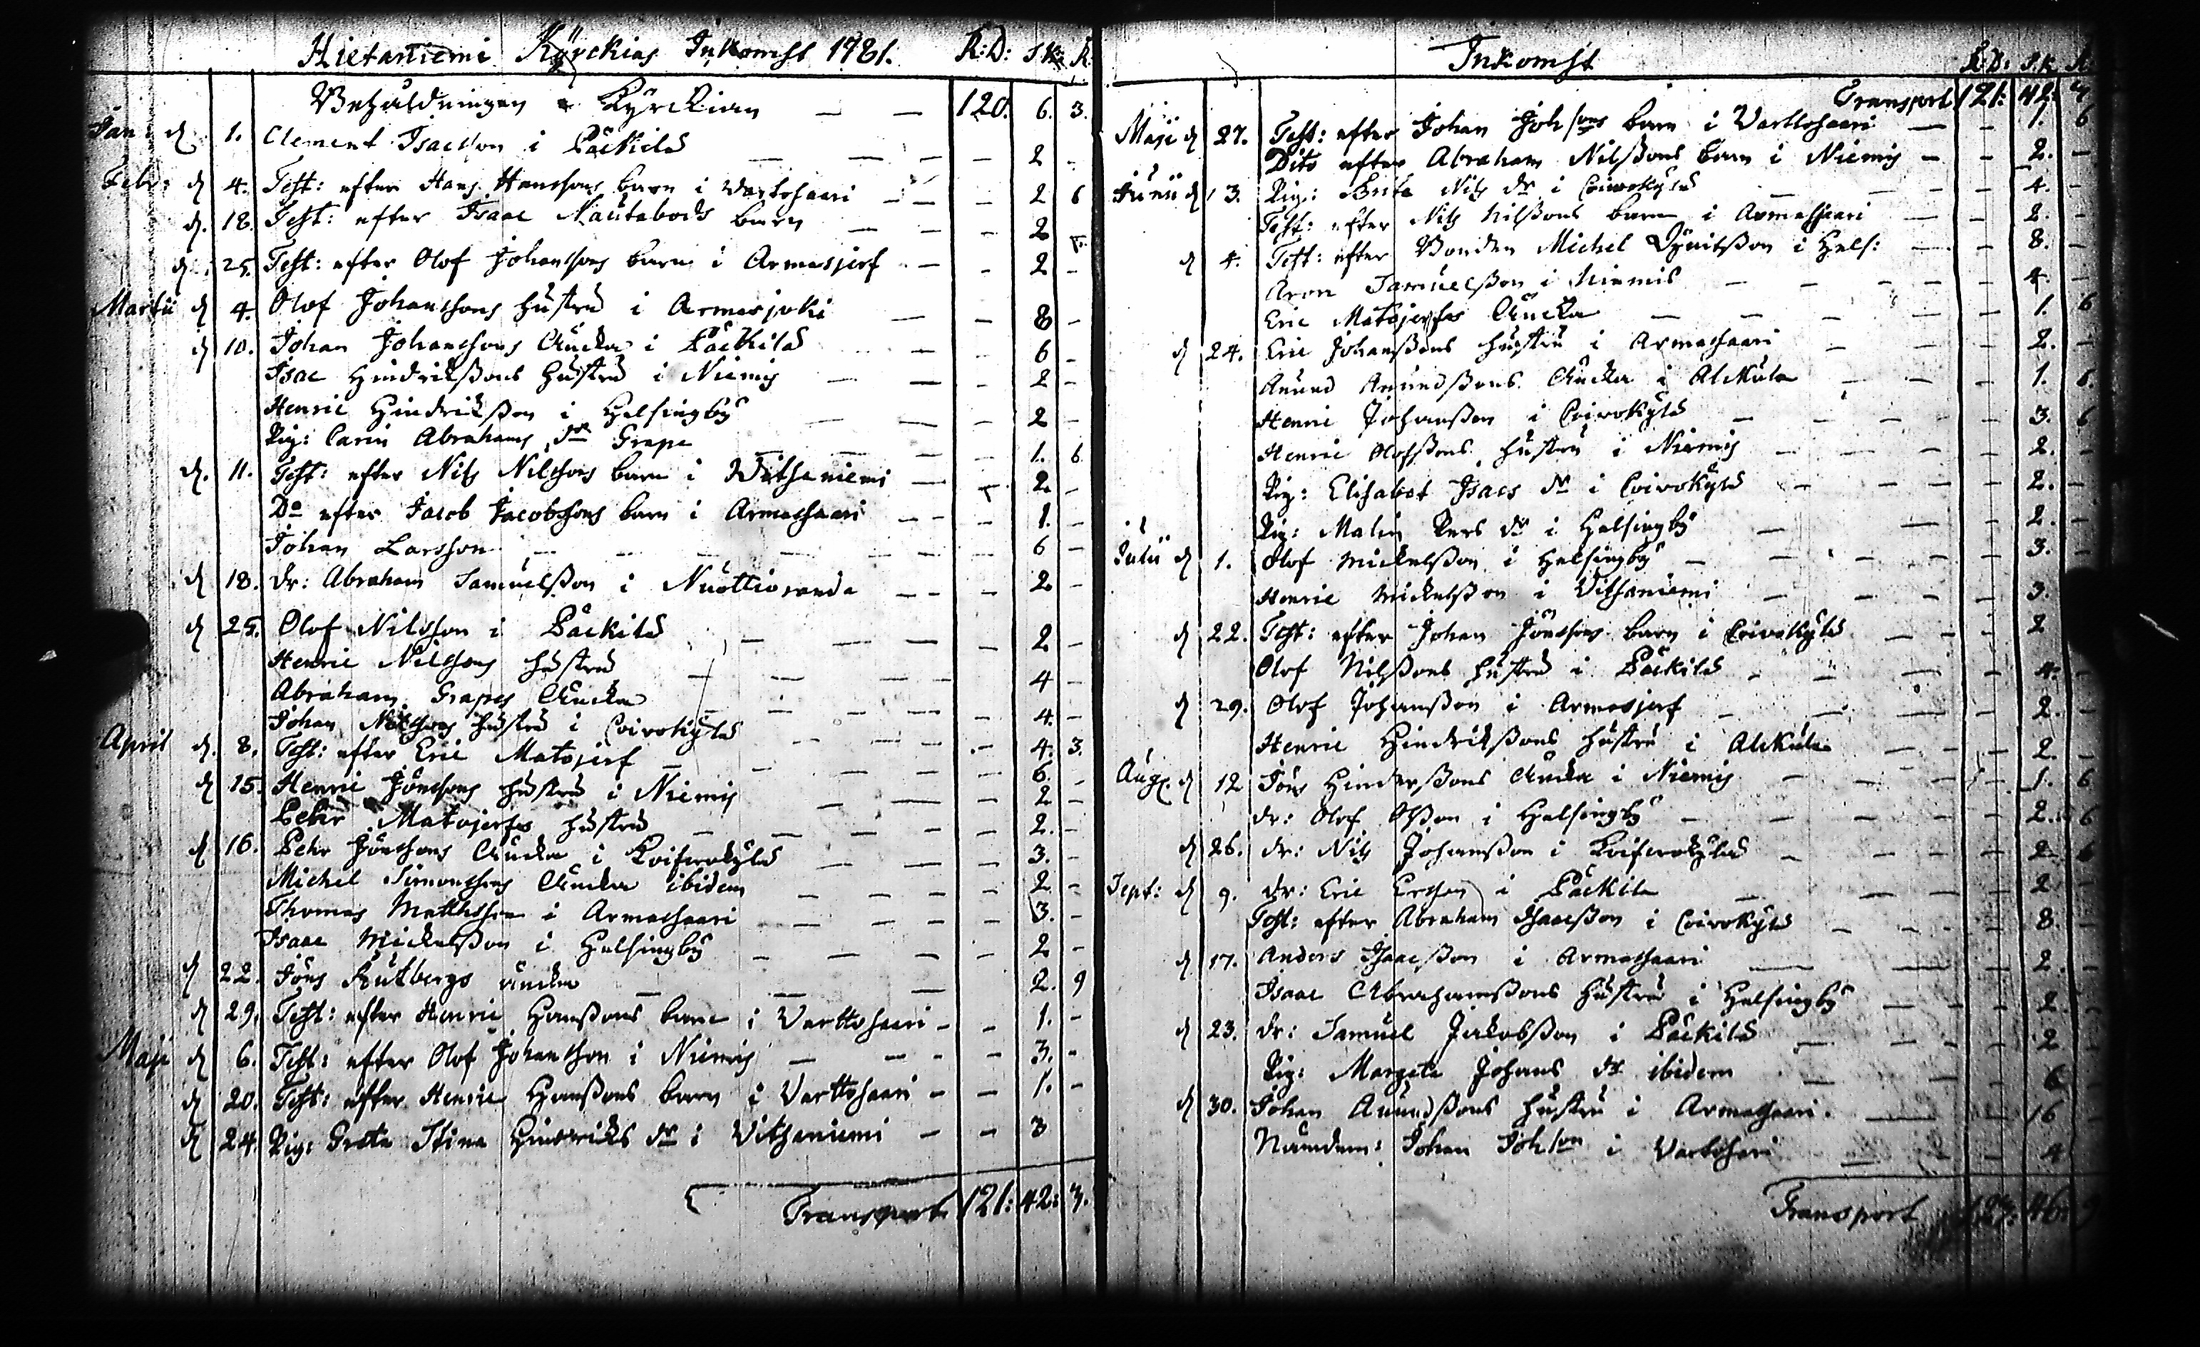 Hietaniemi Kÿrckias Inkomst 1781. R:D: S.k: R.
Behåldningen Kÿrckian — — 120. 6. 3.
Jan: d. 1. Clement Isacsson i Päckilä — — 2 -
Febr: d 4. Test: efter Hans Hanssons barn i Vartosaari — — 2 6
d. 18. Test: efter Isaac Nautabods barn — — 2
d. 25. Test: efter Olof Johanssons barn i Armasjerf — — 2 -
Martii d 4. Olof Johanssons hustru i Armasjoki — — 8 -
d 10. Johan Johanssons Äncka i Päckilä — — 6 -
Isac Hindrikßons hustru i Niemis — — 2 -
Henric Hindrikßon i Helsingbÿ — — 2 -
Pig: Carin Abrahams dr Grape — — 1. 6
d. 11. Test: efter Nils Nilssons barn i Witsaniemi — — 2 -
Do efter Jacob Jacobssons barn i Armassaari — — 1. -
Johan Larsson — — 6 -
d 18. dr: Abraham Samuelßon i Nuottioranda — — 2 -
d 25. Olof Nilsson i Päckilä — — 2 -
Henric Nilssons hustru — — 4 -
Abraham Grapes Äncka — — 4. -
Johan Nilssons hustru i Coivokÿlä — — 4. 3.
April d. 8. Test: efter Eric Matojerf — — 6. -
d 15. Henric Jönssons hustru i Niemis — — 2 -
Pehr Matojerfs hustru — — 2. -
d 16. Pehr Jönssons Äncka i Koiferokÿlä — — 3. -
Michel Simonssons Äncka ibidem — — 2 -
Thomas Mathsson i Armassaari — — 3. -
Isaac Mickelßon i Helsingbÿ — — 2 -
d 22. Jöns Rutbergs äncka — — 2. 9
d 29. Test: efter Henric Hansßons barn i Varttosaari — — 1. -
Maji d 6. Test: efter Olof Johansson i Niemis — — 3. -
d 20. Test: efter Henric Hansßons barn i Varttosaari — — 1. -
d 24. Pig: Greta Stina Hindriks dr i Vitsaniemi — — 3
Transport. 121: 42: 3.
Inkomst R:D: S.k
Transport 121: 42:
Maji d 27. Test: efter Johan Johssons barn i Varttosaari — — 1. 6
Dito efter Abraham Nilßons barn i Niemis — — 2. -
Junii d 3. Pig: Brita Nils dr i Coivokÿlä — — 4. -
Test: efter Nils Nilßons barn i Armassaari — — 2. -
d 4. Test: efter Bonden Michel i Hels: — — 8. -
Aron Samuelßon i Niemis — — 4. -
Eric Matojerfs Äncka — — 1. 6
d 24. Eric Johanßons hustru i Armassaari — — 2. -
Anund Anundßons Äncka i Alkula — — 1. 6.
Henric Johanßon i Coivokÿlä — — 3. 6
Henric Olofßons hustru i Niemis — — 2. -
Pig: Elisabet Isacs dr i Coivokÿlä — — 2. -
Pig: Malin Pers dr i Helsingbÿ — — 2. -
Julii d 1. Olof Mickelßon i Helsingbÿ — — 3. -
Henric Mickelßon i Vitsaniemi — — 3. -
d 22. Test: efter Johan Jönssons barn i Coivokÿlä — — 2 -
Olof Nilßons hustru i Päckilä — — 4. -
d 29. Olof Johanßon i Armasjerf — — 2. -
Henric Hindrikßons hustru i Alkula — — 2. -
Aug. d 12 Jöns Hindersßons Äncka i Niemis — — 1. 6
dr: Olof Olßon i Helsingbÿ — — 2. 6
d 26. dr: Nils Johanßon i Koiferokÿlä — — 2. 6
Sept: d 9. dr: Eric Ersson i Päckila — — 2 -
Test: efter Abraham Isaacßon i Coivokÿlä — — 8. -
d 17. Anders Isaacßon i Armassaari — — 2. -
Isaac Abrahamßons hustru i Helsingbÿ — — 2. -
d 23. dr: Samuel Jakobßon i Päckilä — — 2 -
Pig: Margeta Johans dr ibidem — — 6
d 30. Johan Anundßons hustru i Armassaari. — — 16
Nämdem: Johan Johson i Vartosari — — 4
Transport 46: